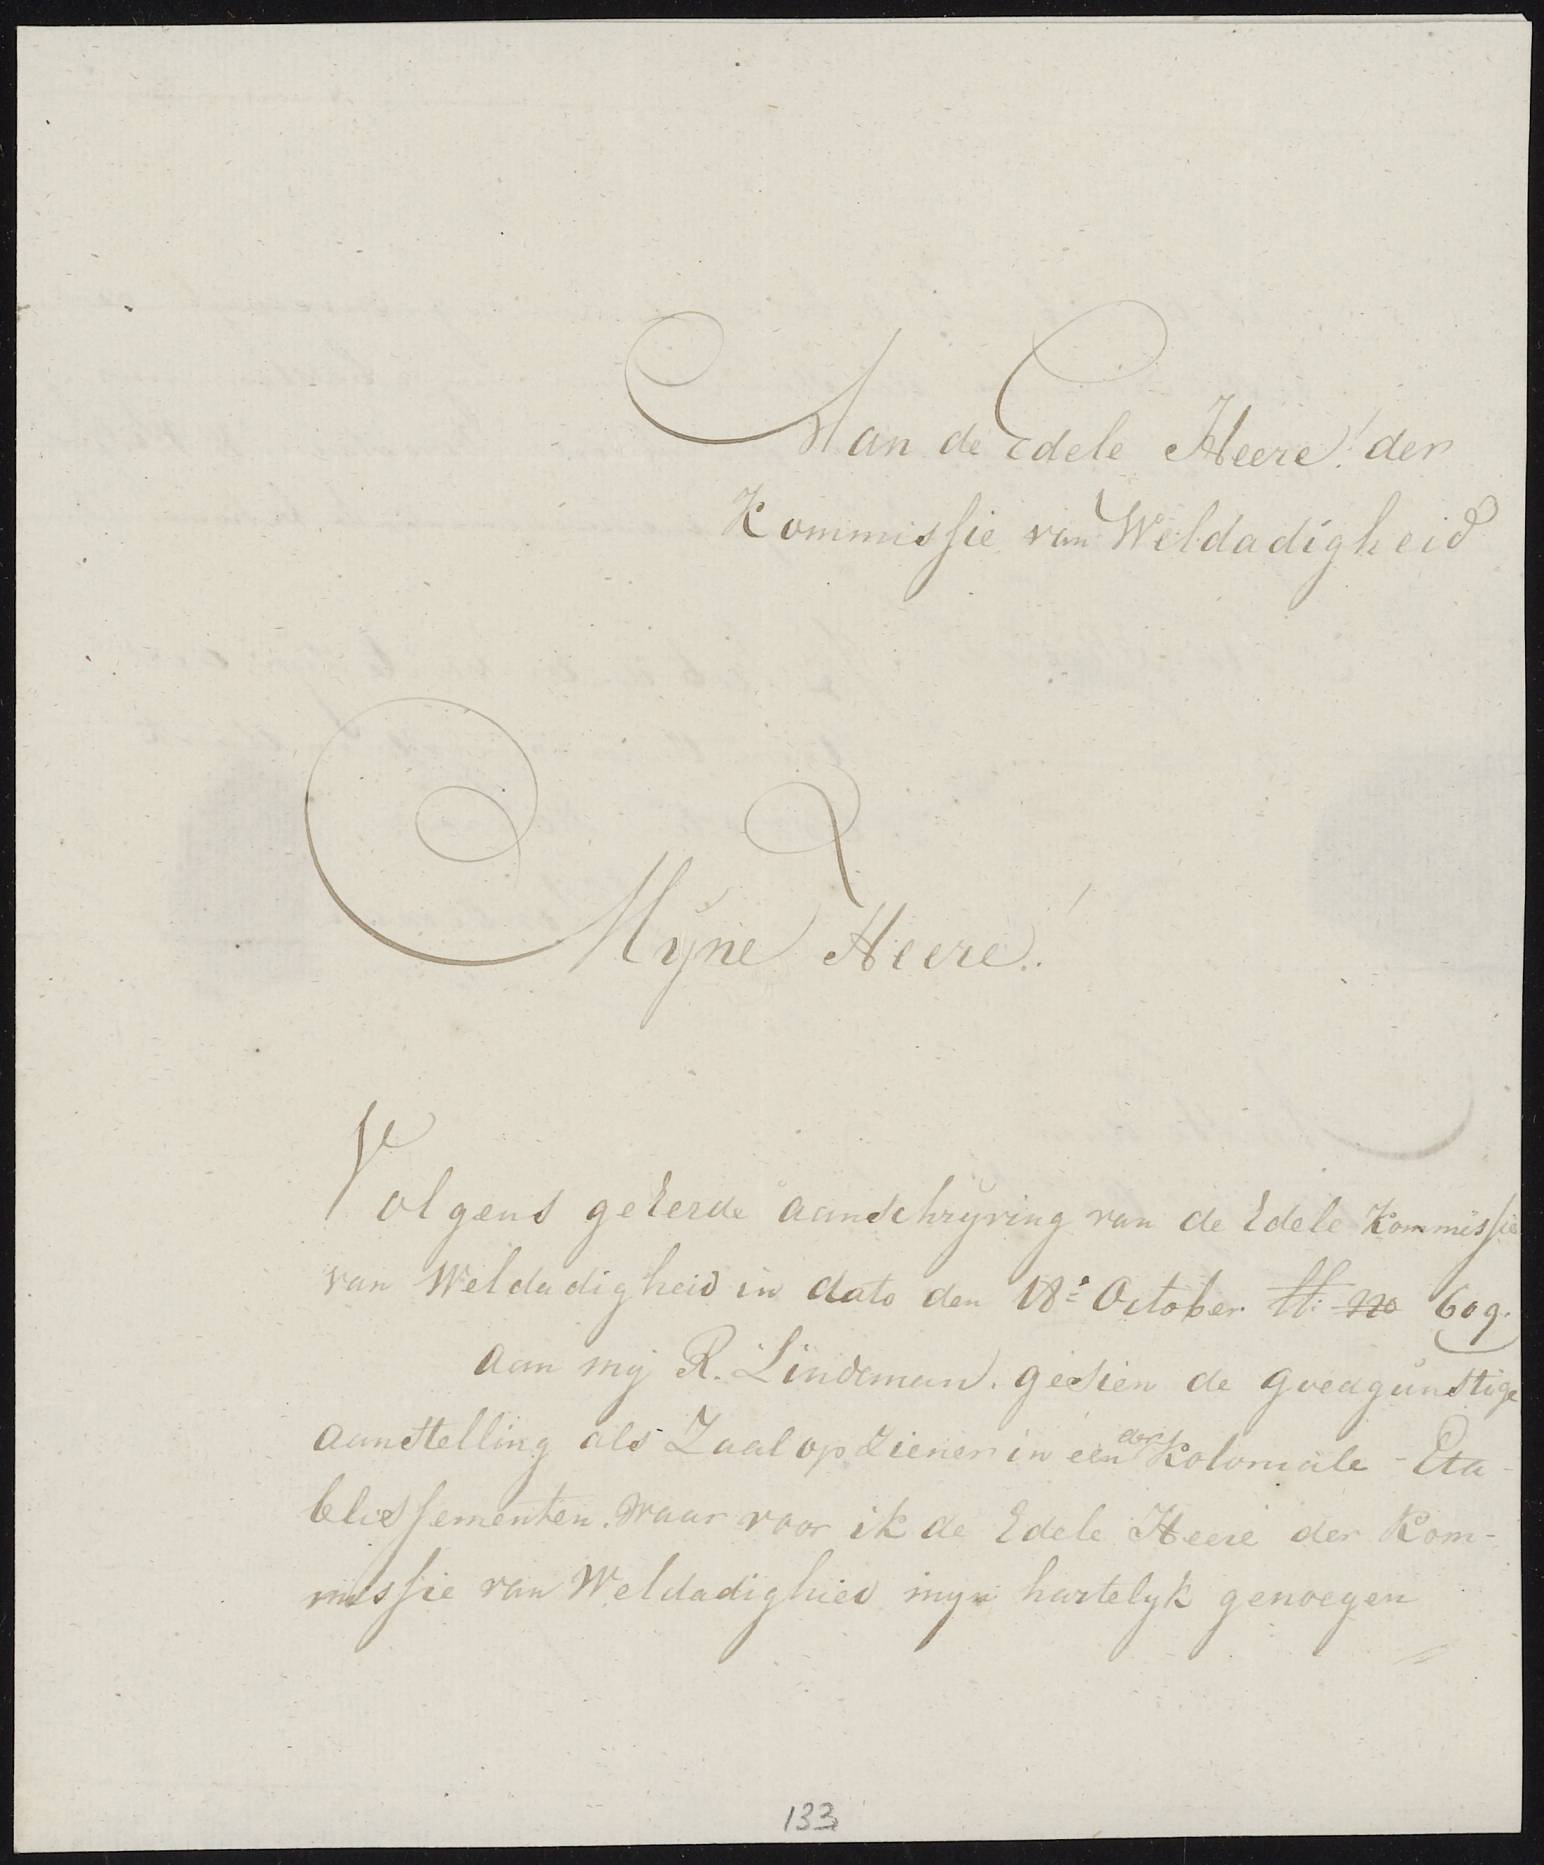 Aan de Edele Heere! der
Kommissie van Weldadigheid
Myne Heere!
Volgens geEerde aanschryving van de Edele Kommissie
van Weldadigheid in dato den 18e October ll: no 609.
aan mij R. Lindeman. gesien de goedgunstige
aanstelling als Zaalopziener in een der Koloniale Eta-
blissementen. waar voor ik de Edele Heere der Kom-
missie van Weldadighied myn hartelyk genoegen
133